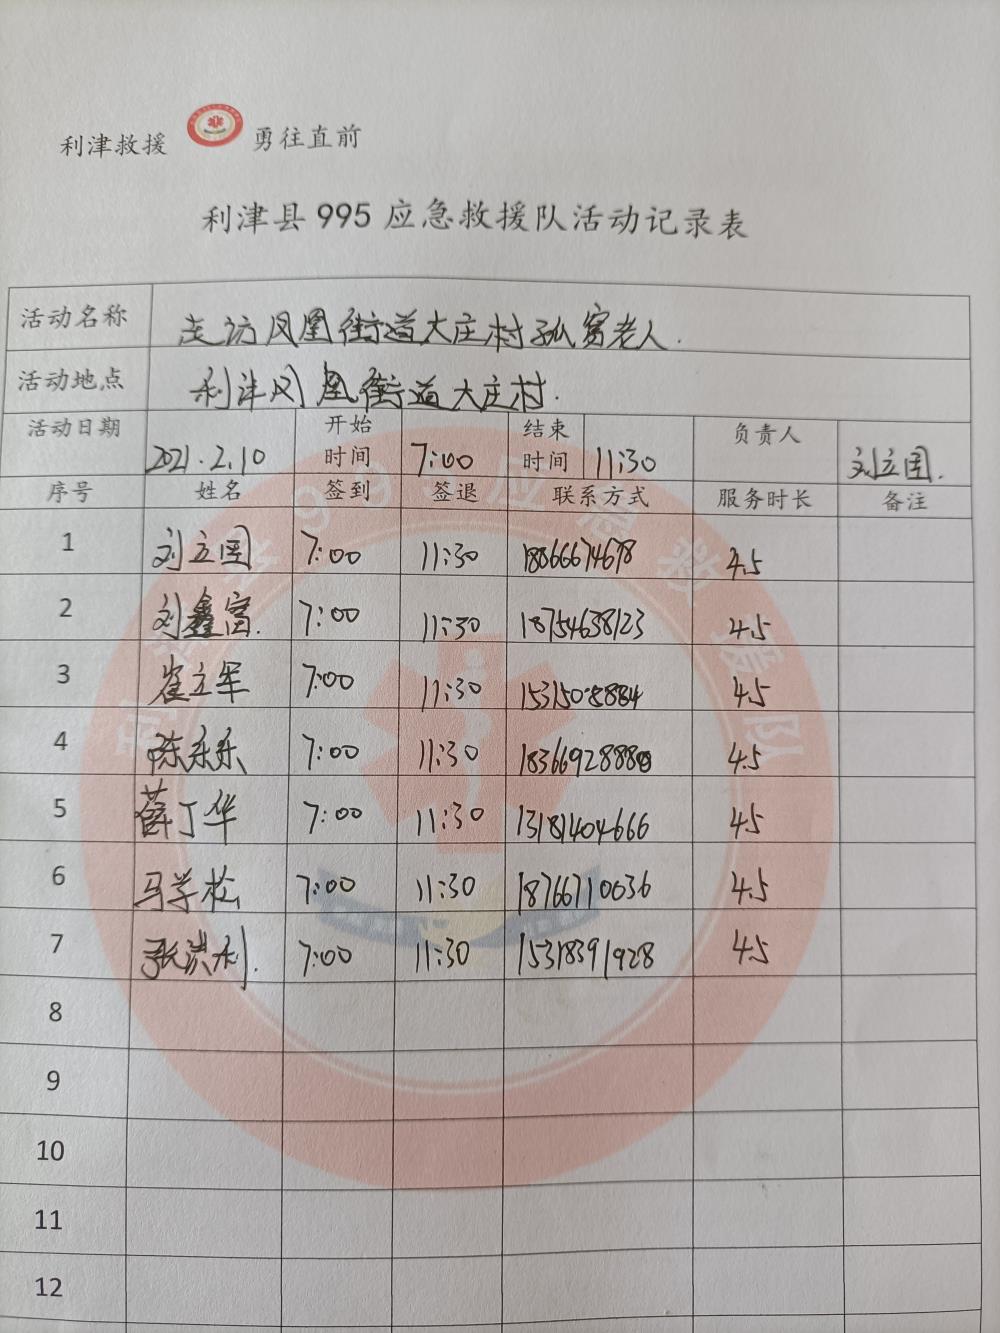 利津救援 勇往直前
利津县995应急救援队活动记录表
活动名称 走访凤凰街道大庄村孤寡老人.
活动地点 利津凤凰街道大庄村.
活动日期 2021.2.10 开始时间 7:00 结束时间 11:30 负责人 刘立国.
序号 姓名 签到 签退 联系方式 服务时长 备注
1 刘立国 7:00 11:30 18066674678 4.5
2 刘鑫富. 7:00 11:30 18754638123 4.5
3 崔立军 7:00 11:30 4.5
4 陈乐乐 7:00 11:30 4.5
5 薛丁华 7:00 11:30 13181404666 45
6 马学松 7:00 11:30 18766710036 4.5
7 张洪利. 7:00 11:30 15318391928 4.5
8
9
10
11
12